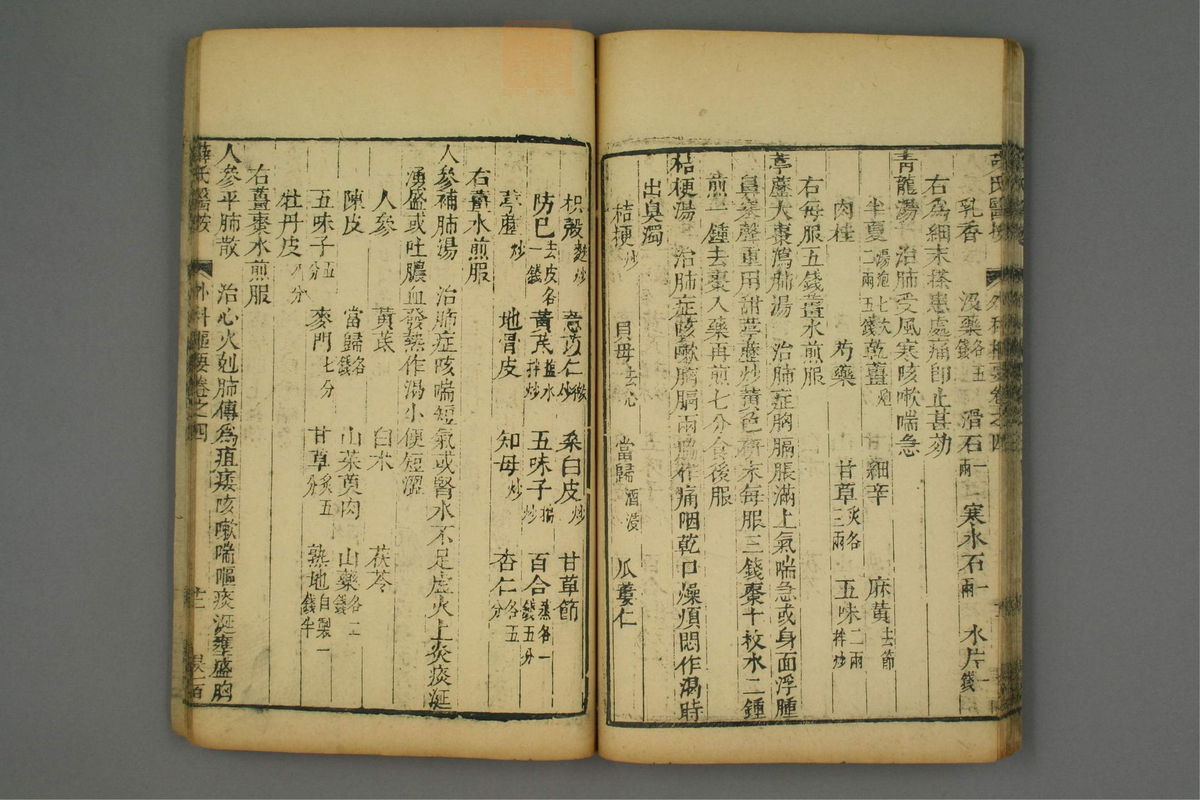 薛氏醫按 外科樞要卷之四
乳香 沒藥各五錢 滑石一兩 寒水石一兩 氷片一錢
右為細末搽患處痛即止甚効
青龍湯 治肺受風寒咳嗽喘急
半夏湯泡七次二兩五錢 乾薑炮 細辛 麻黃去節
肉桂 芍藥 甘草炙各三兩 五味二兩拌炒
右每服五錢薑水煎服
葶藶大棗瀉肺湯 治肺症胸膈脹滿上氣喘急或身面浮腫
鼻塞聲重用甜葶藶炒黃色研末每服三錢棗十枚水二鍾
煎一鍾去棗入藥再煎七分食後服
桔梗湯 治肺症咳嗽胸膈兩脇作痛咽乾口燥煩悶作渴時
出臭濁
桔梗炒 貝母去心 當歸酒浸 瓜蔞仁
枳殼麩炒 薏苡仁微炒 桑白皮炒 甘草節
防巳去皮各一錢 黃芪鹽水拌炒 五味子搗炒 百合蒸各一錢五分
葶藶炒 地骨皮 知母炒 杏仁各五分
右薑水煎服
人參補肺湯 治肺症咳喘短氣或腎水不足虛火上炎痰涎
湧盛或吐膿血發熱作渴小便短澀
人參 黃芪 白朮 茯苓
陳皮 當歸各一錢 山茱萸肉 山藥各二錢
五味子五分 麥門七分 甘草炙五分 熟地自製一錢半
牡丹皮八分
右薑棗水煎服
人參平肺散 治心火尅肺傳為疽痿咳嗽喘嘔痰涎壅盛胸
薛氏醫按 外科樞要卷之四